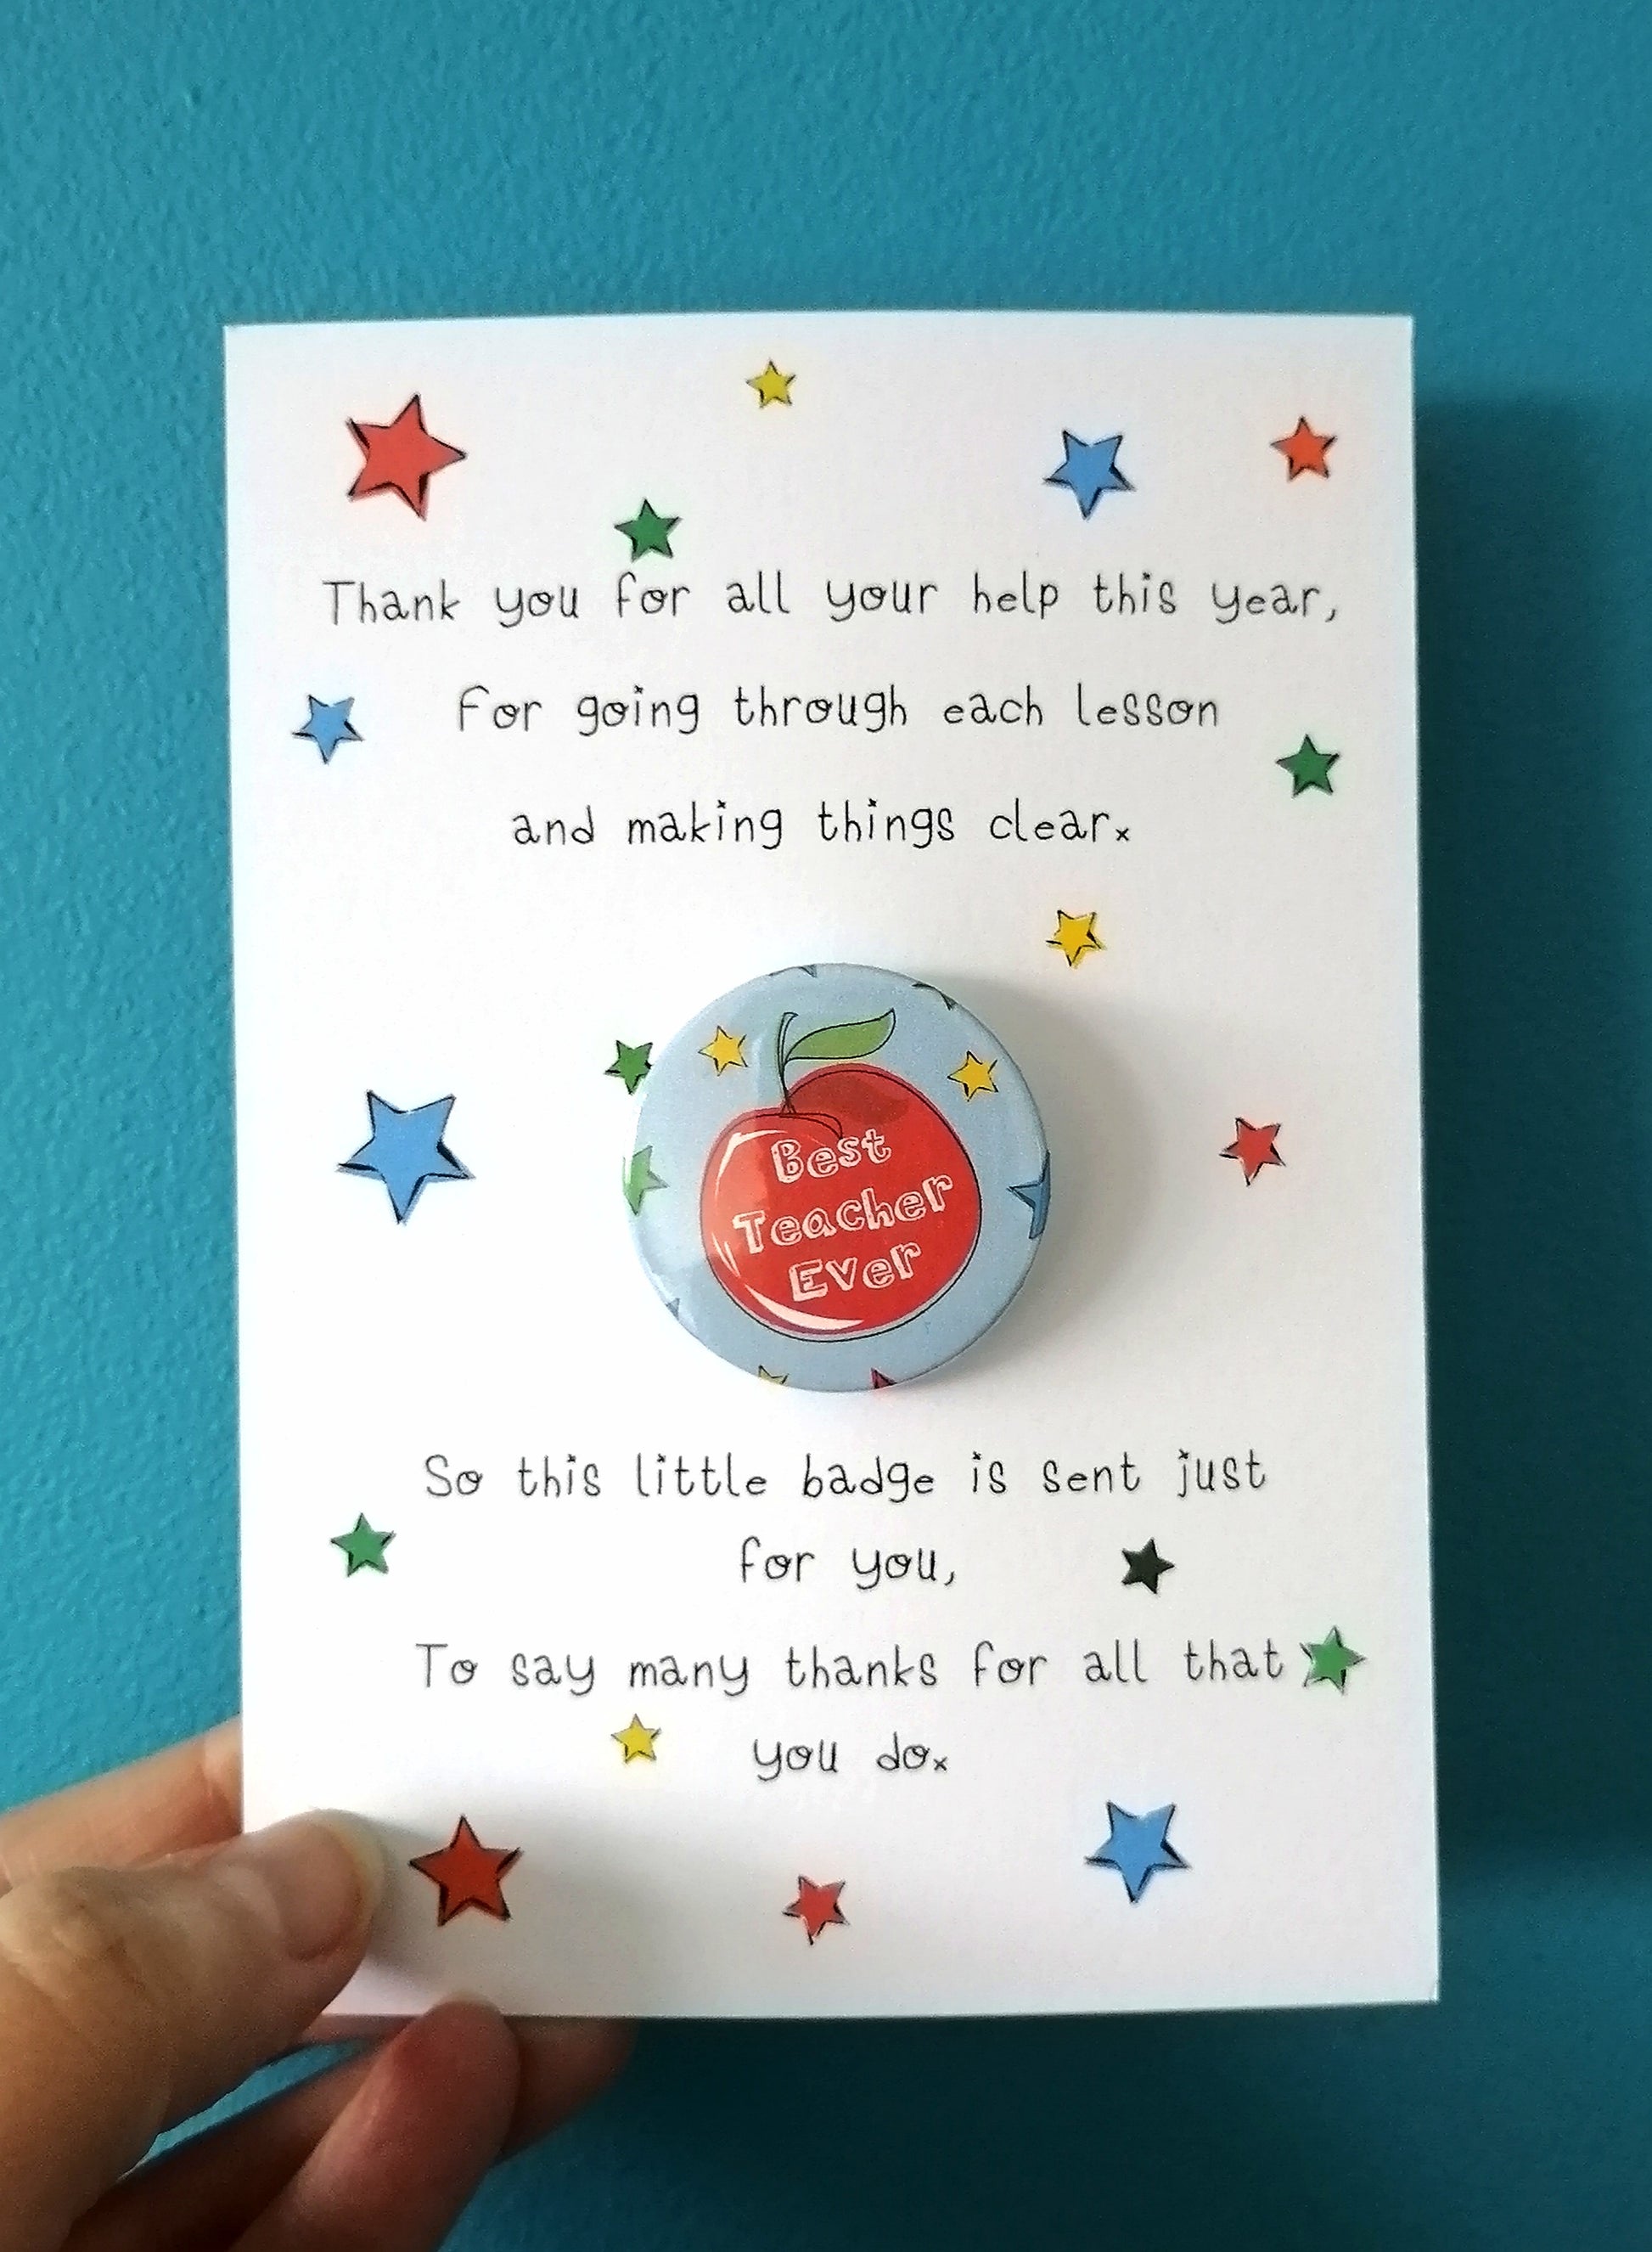 Thank you for all your help this year,
For going through each lesson
and making things clear.
Best
Teacher
Ever
So this little badge is sent just
for you,
To say many thanks for all that
you do.